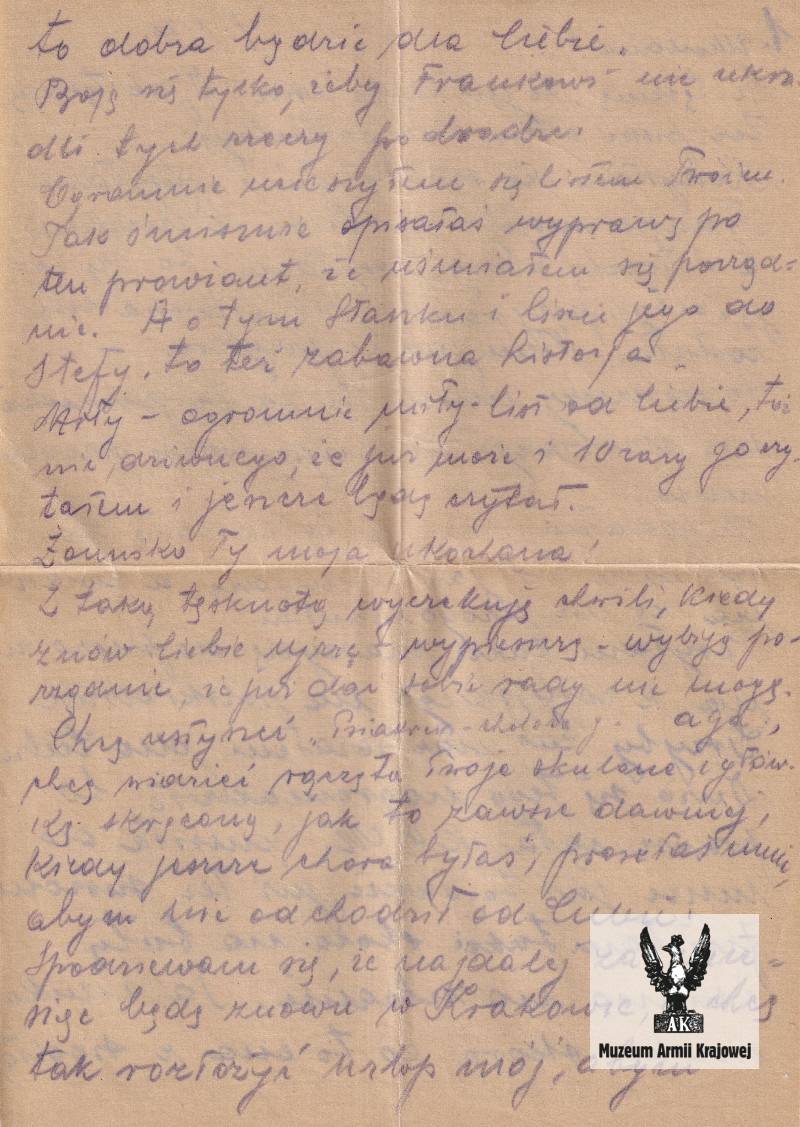 to dobra będzie dla Ciebie.
Boję się tylko, żeby Frankowś nie ukra-
dli tych rzeczy po drodze.
Ogromnie ucieszyłem się listem Twoim.
Tak śmiesznie opisałaś wyprawę po
ten prowiant, że uśmiałem się porząd=
nie. A o tym Staszku i liście jego do
Stefy, to też zabawna historja.
Miły - ogromnie miły - list od Ciebie, toż
nic dziwnego, że już może i 10 razy go czy-
tałem i jeszcze będę czytał.
Żonuśko Ty moja ukochana!
Z taką tęsknotą wyczekuję chwili, kiedy
znów Ciebie ujrzę - wypieszczę - wybiję po-
rządnie, że już dać sobie rady nie mogę.
Chcę usłyszeć „Psiakrew - cholera
chcę widzieć rączęta Twoje skulone i głów-
kę skręconą, jak to zawsze dawniej,
kiedy jeszcze chora byłaś, prosiłaś mnie,
abym nie odchodził od Ciebie!
Spodziewam się, że najdalej za mie=
siąc będę znowu w Krakowie, chcę
tak rozłożyć urlop mój, abym
AK
Muzeum Armii Krajowej